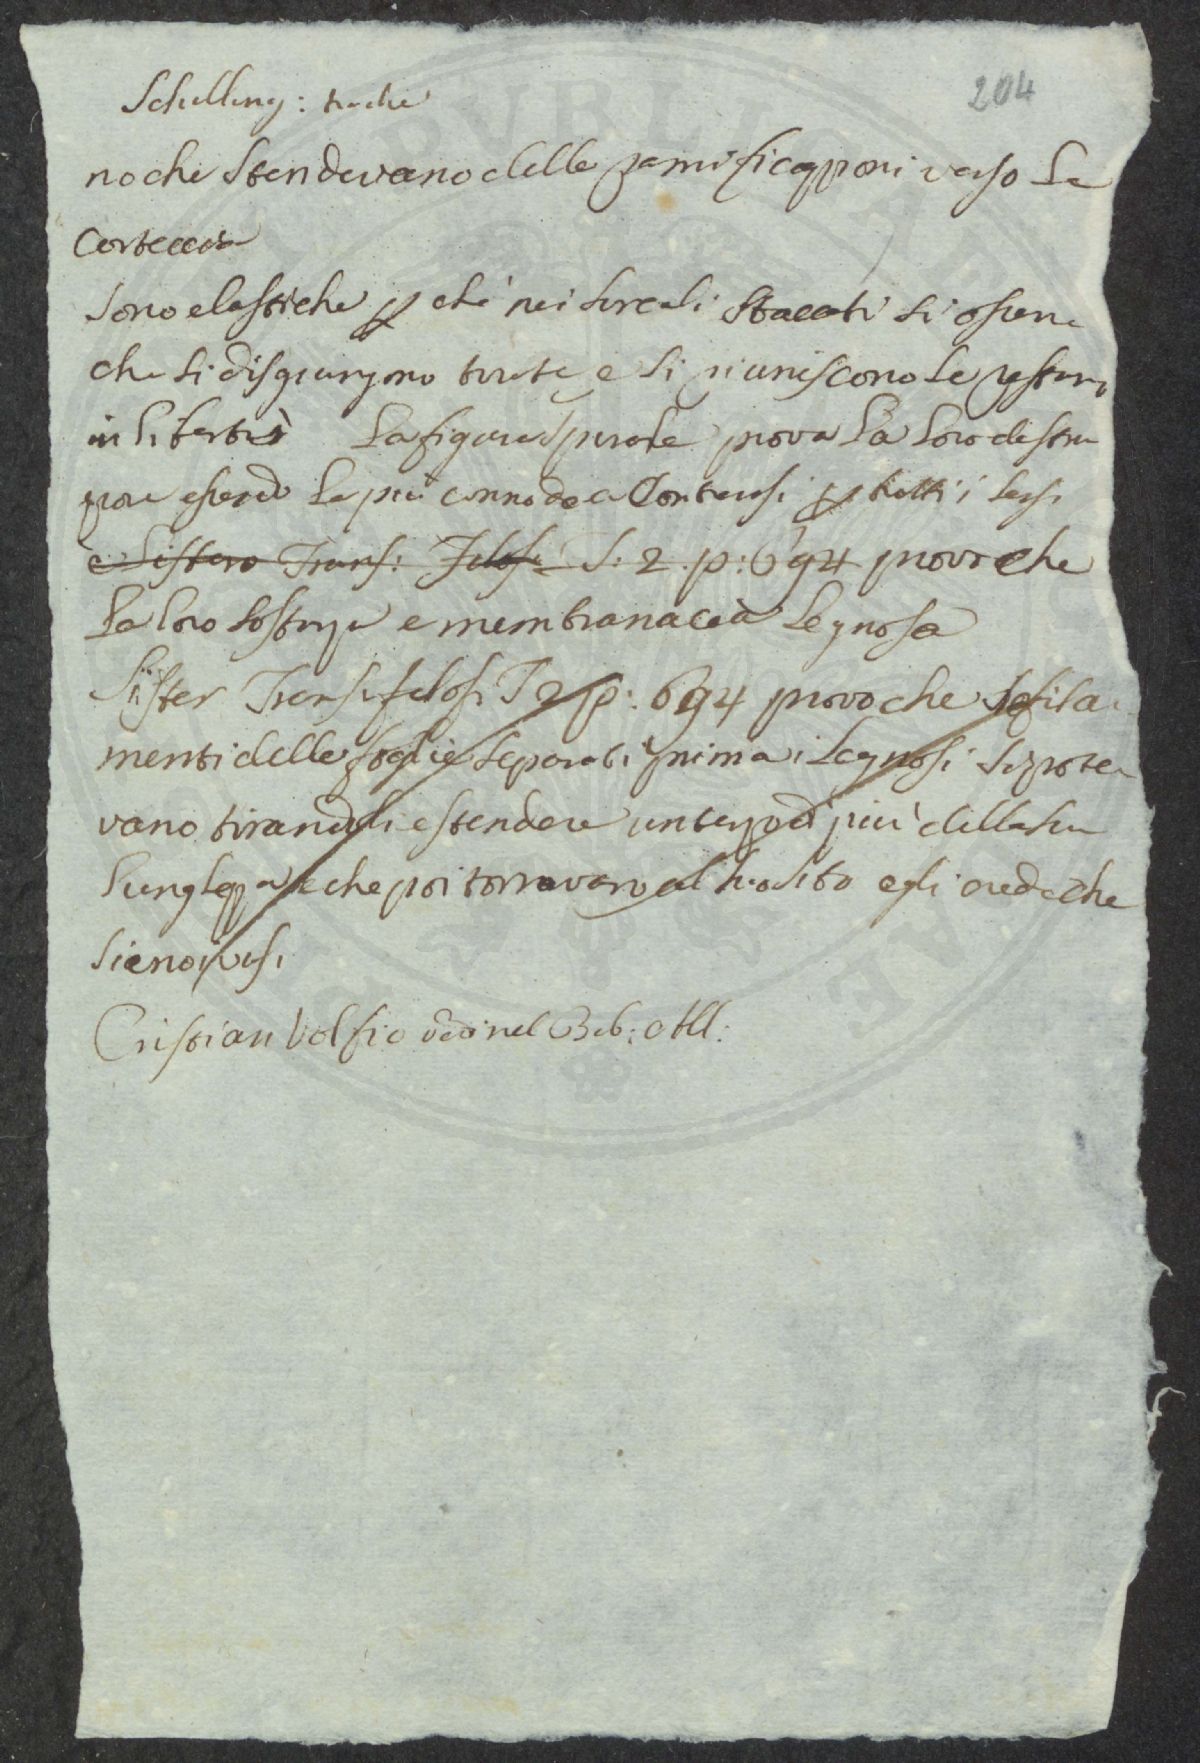 204
Schelling: trache
no che stendevano delle ramificazioni verso la
Corteccia
Sono elastiche p chè nei surculi staccati si osserva
che si disgiungono tirate e si riuniscono
in libertà La figura spirale prova la loro distru
zione essendo la più commoda a p tutti i sensi
e Sistero Trans: Filos: T. 2. p: 694 prova che
la loro sostanza e membranacea Legnosa
Sister Trans: filosi T 2 p: 694 provo che i fila
menti delle foglie separati prima i Legnosi si pote
vano tirandoli estendere un terzo di più della sua
lunghezza e che poi tornavano al solito egli crede che
sieno i vasi
Cristian Volfio vedi nel Bib: All: